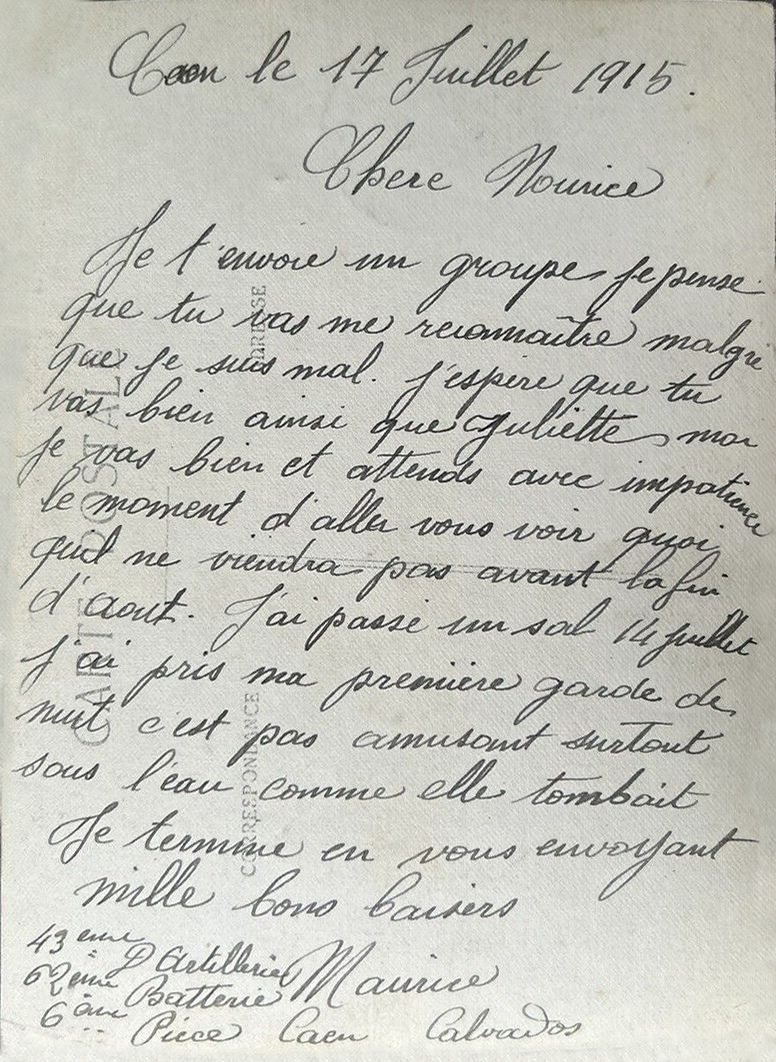 Caen le 17 Juillet 1915.
Chere Nourice
Je t'envoie un groupe je pense
que tu vas me reconnaître malgre
que je suis mal. j'espère que tu
vas bien ainsi que Juliette moi
je vas bien et attends avec impatience
le moment d'aller vous voir quoi
quil ne viendra pas avant la fin
d'aout. J'ai passé un sal 14 juillet
j'ai pris ma première garde de
nuit c'est pas amusant surtout
sous l'eau comme elle tombait
Je termine en vous envoyant
mille bons baisers
43ème D'Artillerie Maurice
62ème Batterie
6ème Pièce Caen Calvados
CARTE POSTALE
CORRESPONDANCE
ADRESSE